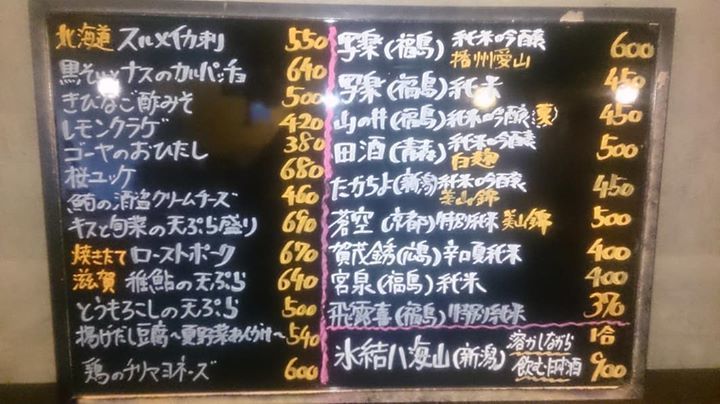 北海道 スルメイカ刺 550
黒そいとナスのカルパッチョ 640
きびなご酢みそ 500
レモンクラゲ 420
ゴーヤのおひたし 380
桜ユッケ 680
鮒の酒盗クリームチーズ 460
キスと旬菜の天ぷら盛り 690
焼きたて ローストポーク 670
滋賀 稚鮎の天ぷら 640
とうもろこしの天ぷら 500
揚げだし豆腐〜夏野菜あんかけ〜 540
鶏のチリマヨネーズ 600
写楽(福島) 純米吟醸 600
播州愛山
写楽(福島) 純米 450
山の井(福島) 純米吟醸 夏 450
田酒(青森) 純米吟醸 500
白麹
たかちよ(新潟) 純米吟醸 450
美山錦
蒼空(京都) 特別純米 美山錦 500
賀茂錦(広島) 辛口夏純米 400
宮泉(福島) 純米 400
飛露喜(福島) 特別純米 370
氷結八海山(新潟) 溶かしながら
飲む日本酒 1合
900